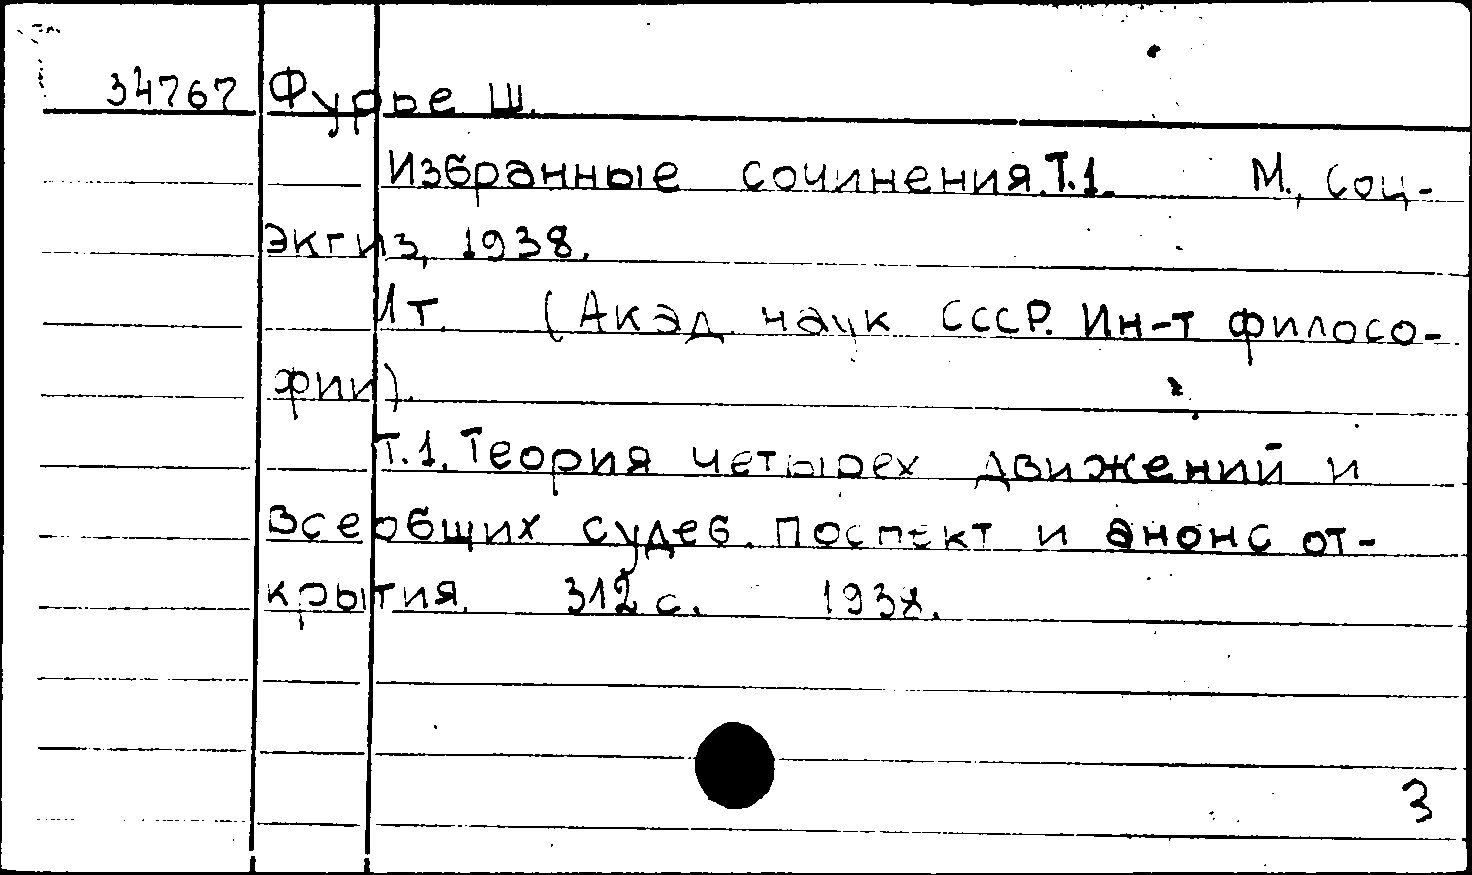 34767 Фурье Ш.
Избранные сочинения.Т.1. М., Соц-
экгиз, 1938.
1 т. (Акад. наук СССР. Ин-т филосо-
фии).
Т.1. Теория четырех движений и
всеобщих судеб. Поспект и анонс от-
крытия. 312 с. 1938.
3